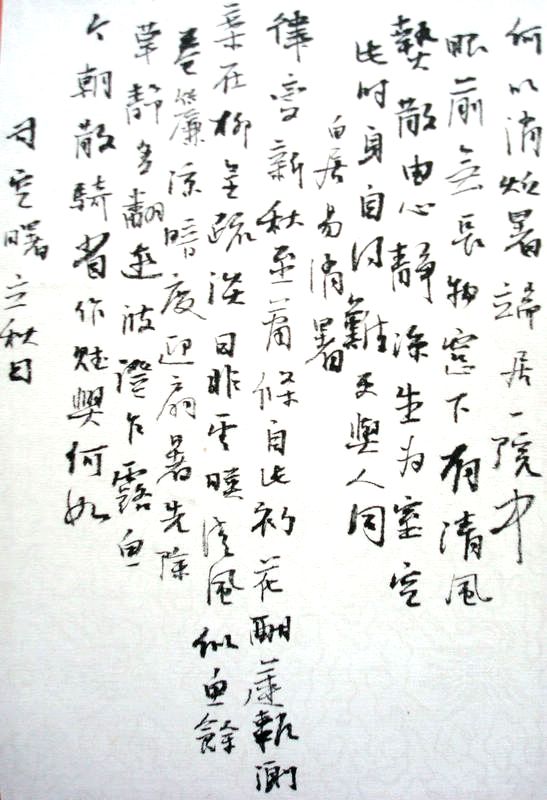 何以消烦暑端居一院中
眼前無長物窗下有清風
熱散由心靜涼生为室空
此时身自得難更與人同
白居易消暑
律变新秋至萧條自此初花酣蓮報谢
葉在柳呈疏淡日非雲映清風似雨餘
卷簾涼暗度迎扇暑先除
草静多翻燕波澄乍露鱼
今朝散騎省作賦興何如
司空曙立秋日